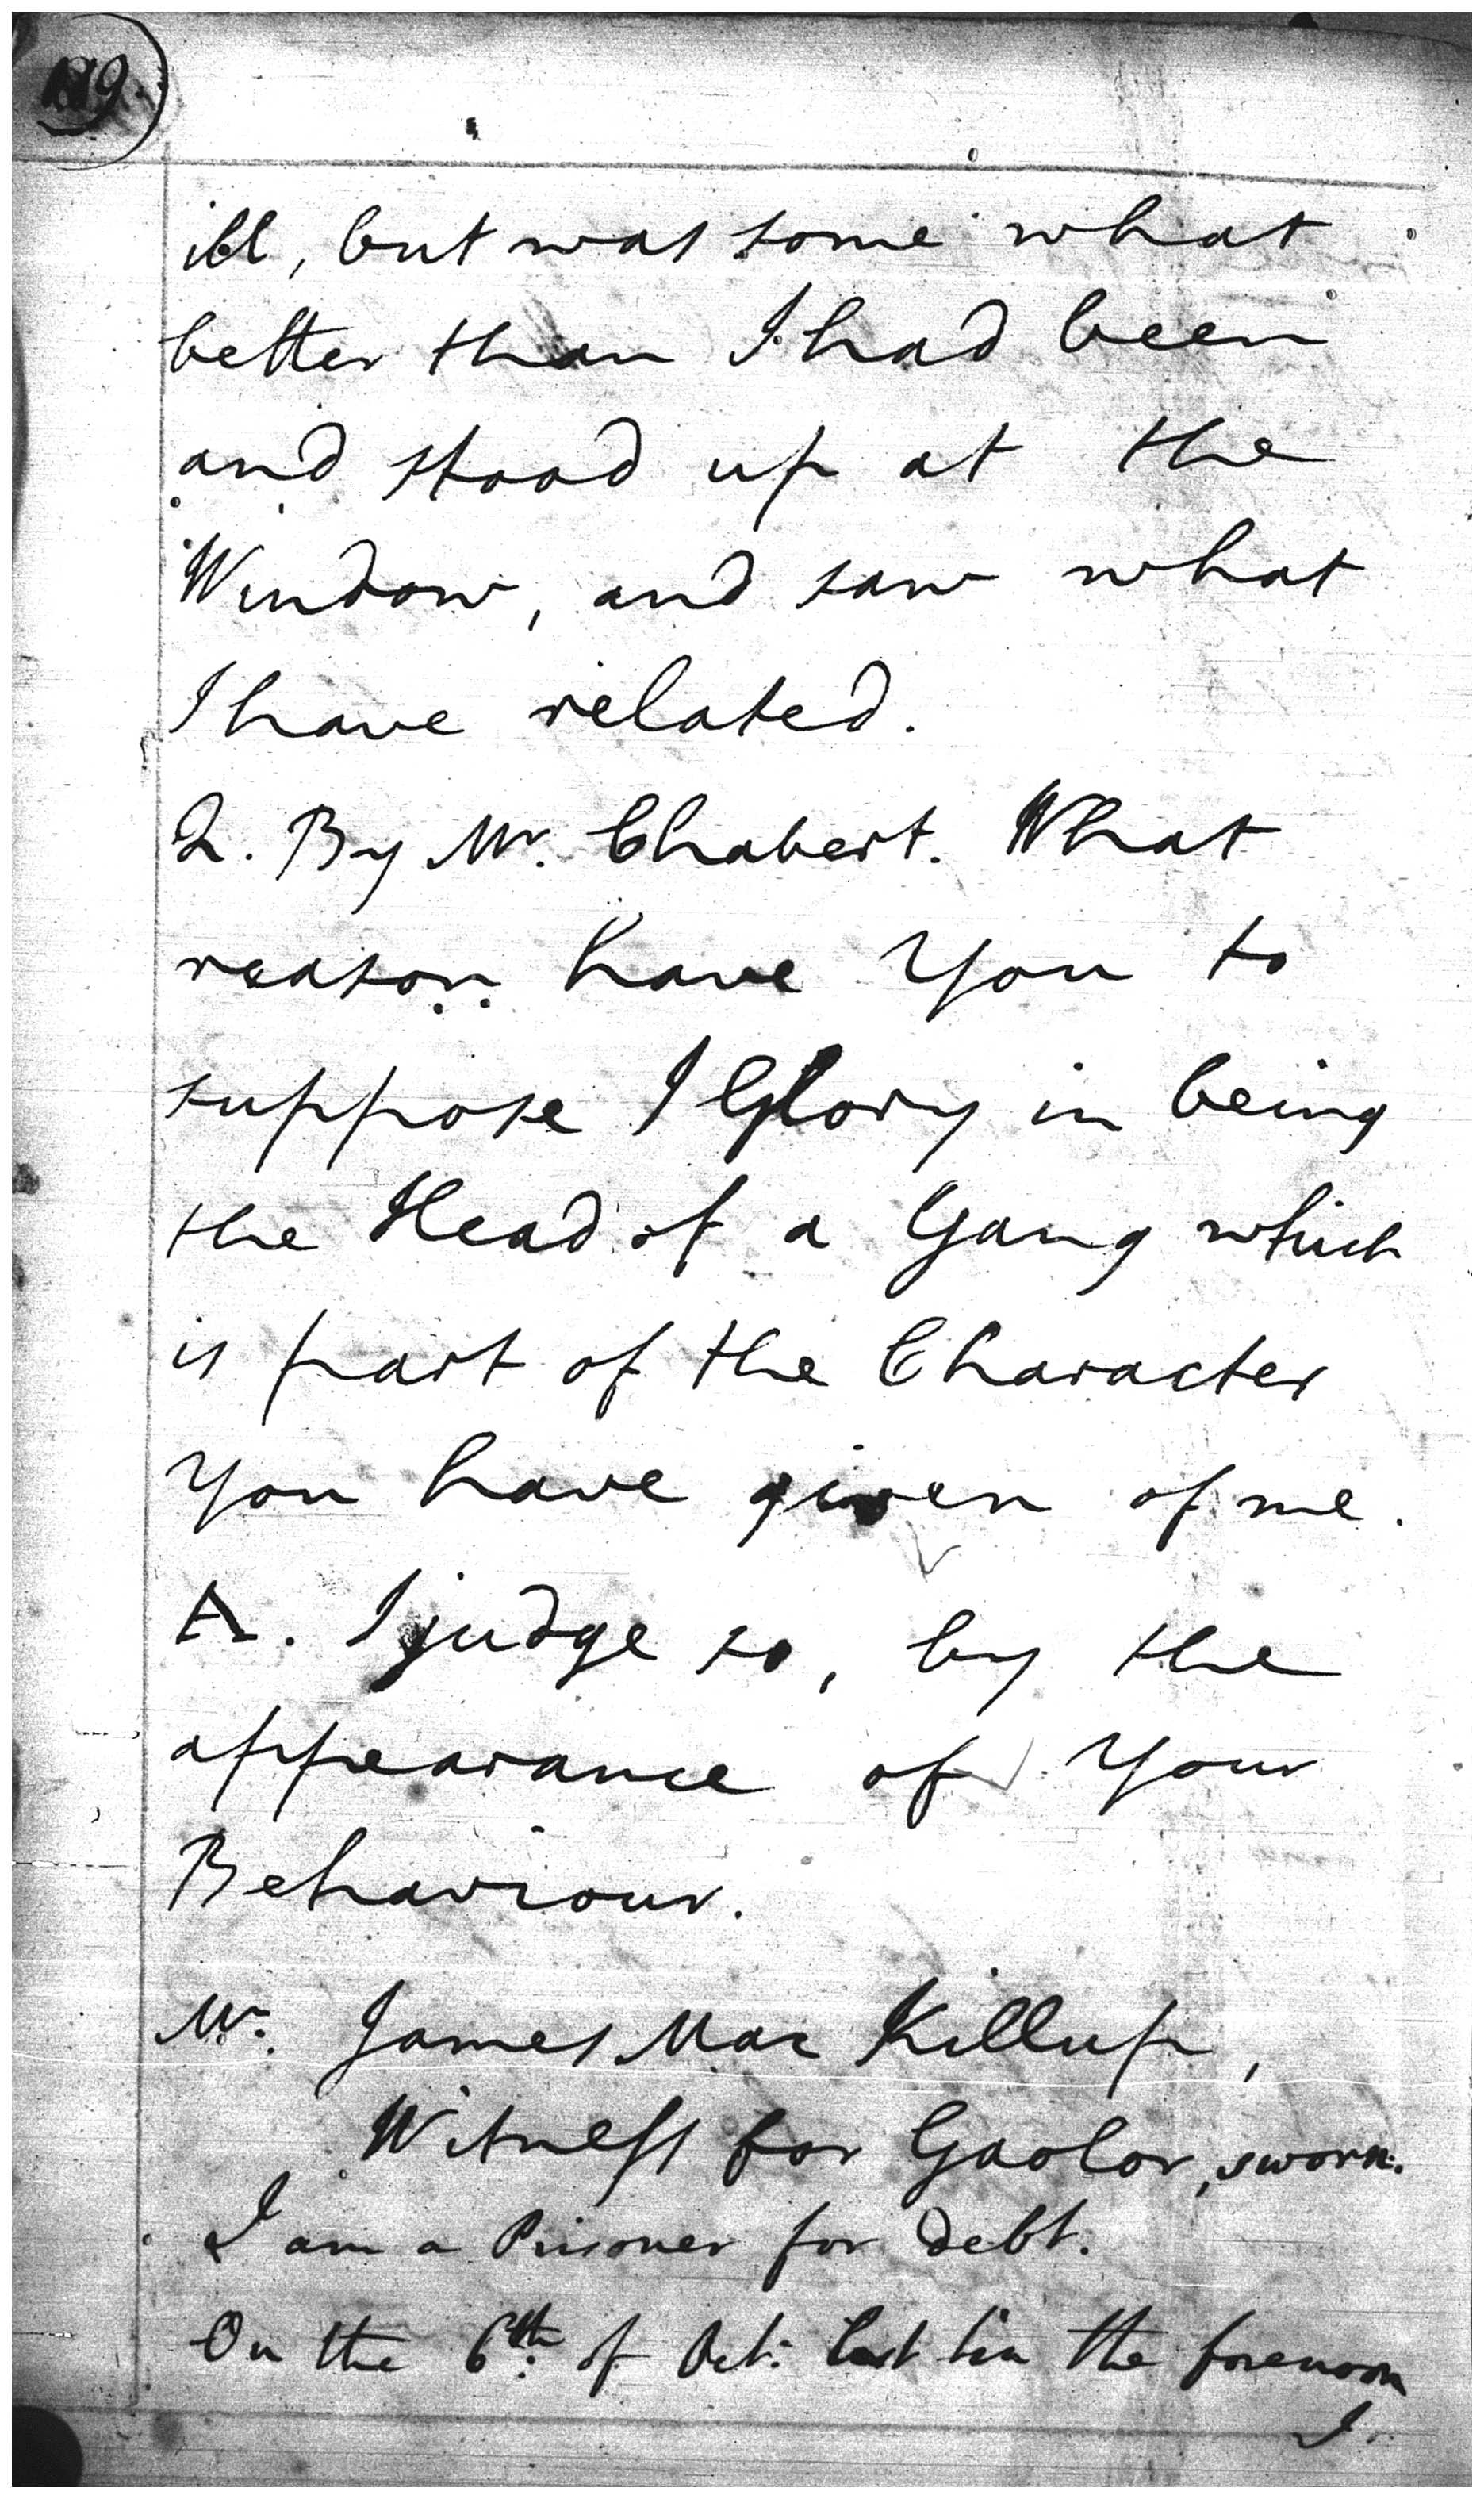 ill, but was some what
better than I had been
and stood up at the
Window, and saw what
I have related.
Q. By Mr. Chabert. What
reason have You to
suppose I Glory in being
the Head of a Gang which
is part of the Character
You have given of me.
A. I judge so, by the
appearance of Your
Behaviour.
Mr. James Mac Killup,
Witness for Gaolor, sworn.
I am a Prisoner for debt.
On the 6th. of Oct. last in the forenoon
I